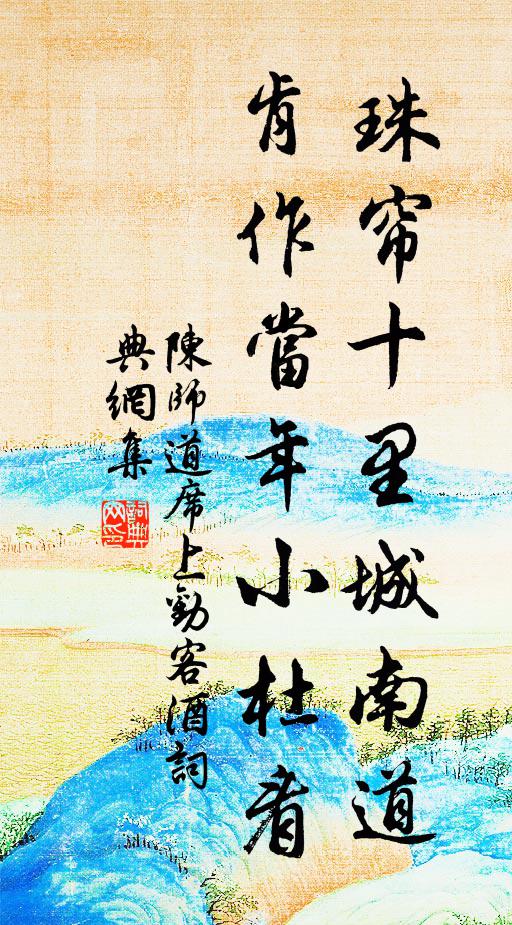 珠帘十里城南道
肯作當年小杜看
陳師道席上勸客酒詞
典網集
詞典網印